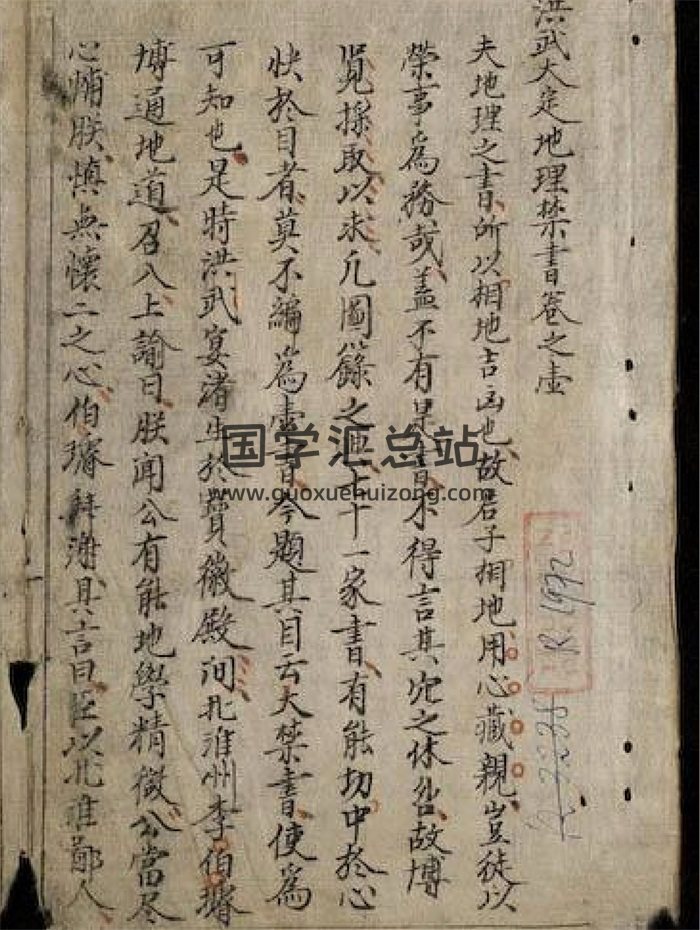 洪武大定地理禁書卷之壹
夫地理之書所以相地吉凶也故君子相地用心藏親豈徒以
榮事爲務哉蓋不有是書不得言其穴之休咎故博
覽採取以求凡圖籙之典十一家書有能切中於心
快於目者莫不編爲壹書今題其目云大禁書使爲
可知也是時洪武宴渚生於賛徽殿间北淮州李伯璿
博通地道召入上諭曰朕聞公有能地學精微公當尽
心補朕慎無懷二之心伯璿拜謝具言曰臣以北淮鄙人
国学汇总站
www.guoxuehuizong.com
R 1992